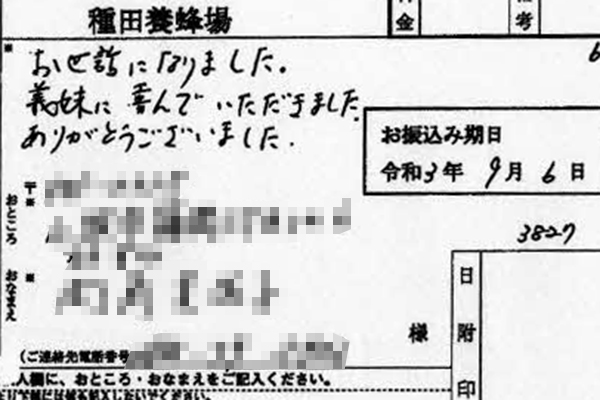 種田養蜂場
金
考
6
お世話になりました。
義妹に喜んでいただきました
ありがとうございました.
お振込み期日
令和3年 9月 6日
〒
※
おところ
3827
おなまえ
※
様
日
附
印
(ご連絡先電話番号
人欄に、おところ・おなまえをご記入ください。